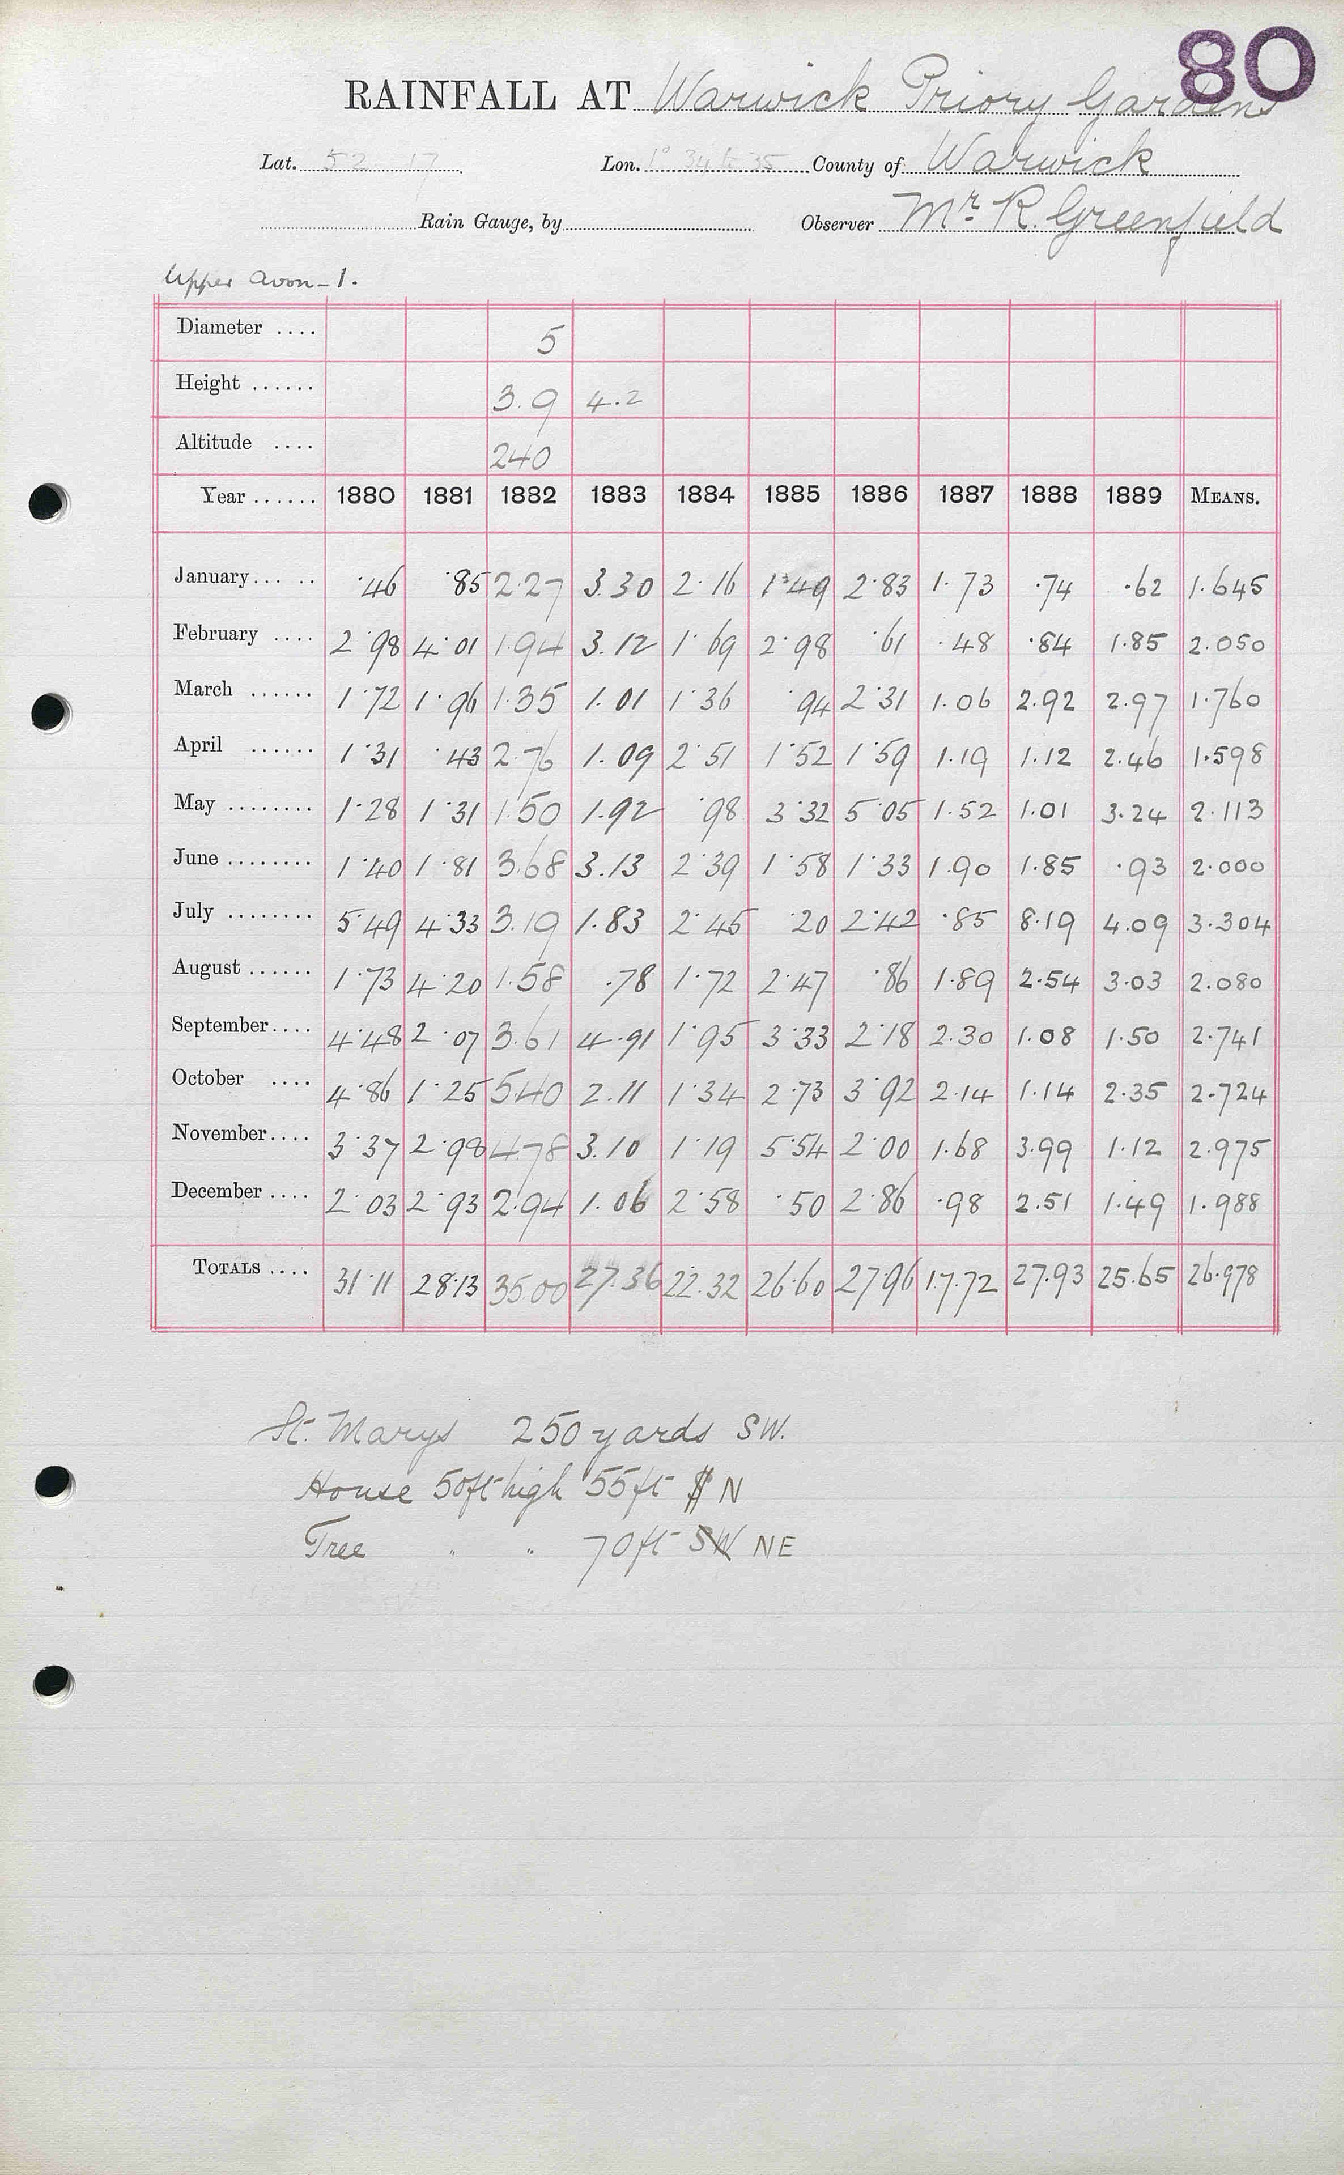 80
RAINFALL AT Warwick Priory Gardens
Lat. 52 17 Lon. 1° 34 & 35 County of Warwick
Rain Gauge, by Observer Mr R. Greenfield
Upper Avon - 1.
Diameter .... 5
Height ...... 3.9 4.2
Altitude .... 240
Year ...... 1880 1881 1882 1883 1884 1885 1886 1887 1888 1889 MEANS.
January... .. ·46 ·85 2·27 3.30 2·16 1·49 2·83 1·73 ·74 ·62 1.645
February .... 2·98 4·01 1.94 3.12 1·69 2·98 ·61 ·48 ·84 1.85 2.050
March ...... 1·72 1·96 1.35 1.01 1·36 ·94 2·31 1.06 2.92 2.97 1.760
April ...... 1·31 ·43 2.76 1.09 2·51 1·52 1·59 1.19 1.12 2.46 1.598
May ........ 1·28 1·31 1.50 1.92 ·98 3·32 5·05 1.52 1.01 3.24 2.113
June ........ 1·40 1·81 3.68 3.13 2·39 1·58 1·33 1.90 1.85 ·93 2.000
July ........ 5·49 4·33 3.19 1.83 2·45 ·20 2·42 ·85 8.19 4.09 3.304
August ...... 1·73 4·20 1.58 .78 1·72 2·47 ·86 1.89 2.54 3.03 2.080
September.... 4·48 2·07 3.61 4.91 1·95 3·33 2·18 2.30 1.08 1.50 2.741
October .... 4·86 1·25 5.40 2.11 1·34 2·73 3·92 2.14 1.14 2.35 2.724
November.... 3·37 2·98 4.78 3.10 1·19 5·54 2·00 1.68 3.99 1.12 2.975
December .... 2·03 2·93 2.94 1.06 2·58 ·50 2·86 ·98 2.51 1.49 1.988
TOTALS .... 31·11 28·13 35.00 27.36 22.32 26·60 27·96 17.72 27.93 25.65 26.978
St. Marys 250 yards SW.
House 50ft high 55ft S N
Tree " " 70ft SW NE